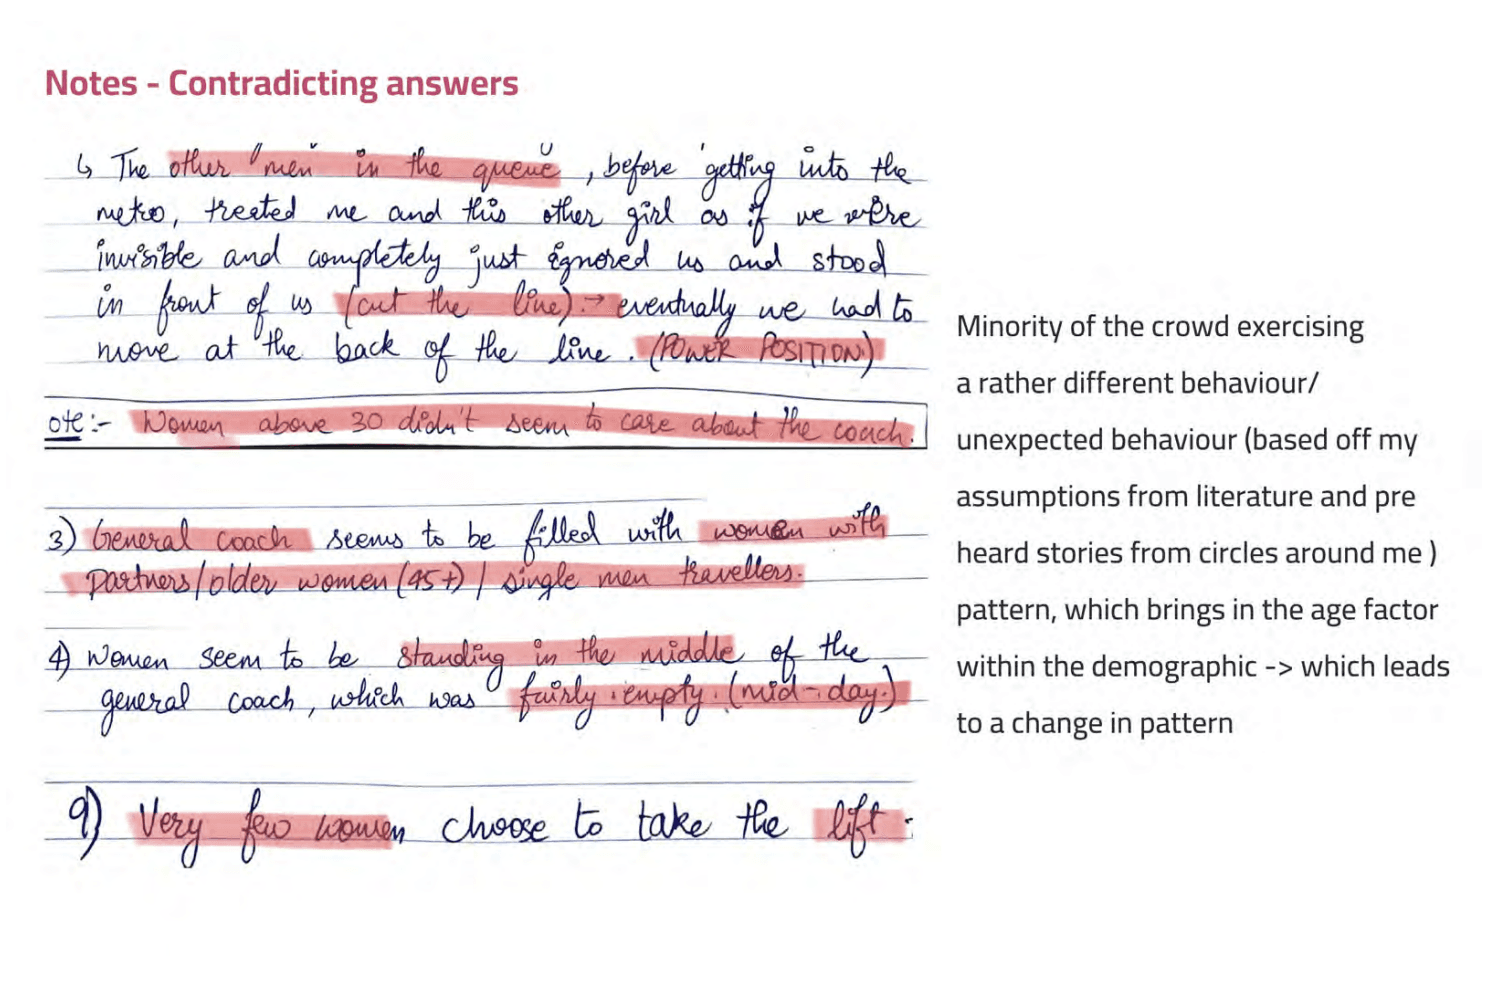 Notes - Contradicting answers
↳ The other "men" in the queue, before getting into the
metro, treated me and this other girl as if we were
invisible and completely just ignored us and stood
in front of us (cut the line). → eventually we had to
move at the back of the line. (POWER POSITION)
ote:- Women above 30 didn't seem to care about the coach.
3) General coach seems to be filled with women with
partners/older women (45+) / single men travellers.
4) Women seem to be standing in the middle of the
general coach, which was fairly empty. (mid-day.)
9) Very few women choose to take the lift.
Minority of the crowd exercising
a rather different behaviour/
unexpected behaviour (based off my
assumptions from literature and pre
heard stories from circles around me )
pattern, which brings in the age factor
within the demographic -> which leads
to a change in pattern